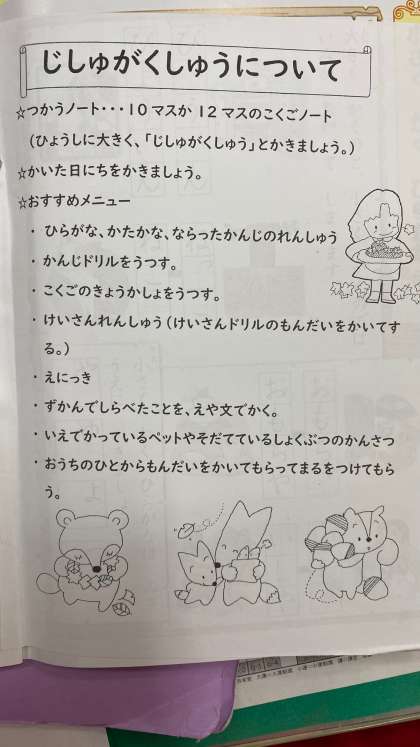 じしゅがくしゅうについて
☆つかうノート・・・10マスか12マスのこくごノート
(ひょうしに大きく、「じしゅがくしゅう」とかきましょう。)
☆かいた日にちをかきましょう。
☆おすすめメニュー
・ひらがな、かたかな、ならったかんじのれんしゅう
・かんじドリルをうつす。
・こくごのきょうかしょをうつす。
・けいさんれんしゅう(けいさんドリルのもんだいをかいてす
る。)
・えにっき
・ずかんでしらべたことを、えや文でかく。
・いえでかっているペットやそだてているしょくぶつのかんさつ
・おうちのひとからもんだいをかいてもらってまるをつけてもら
う。